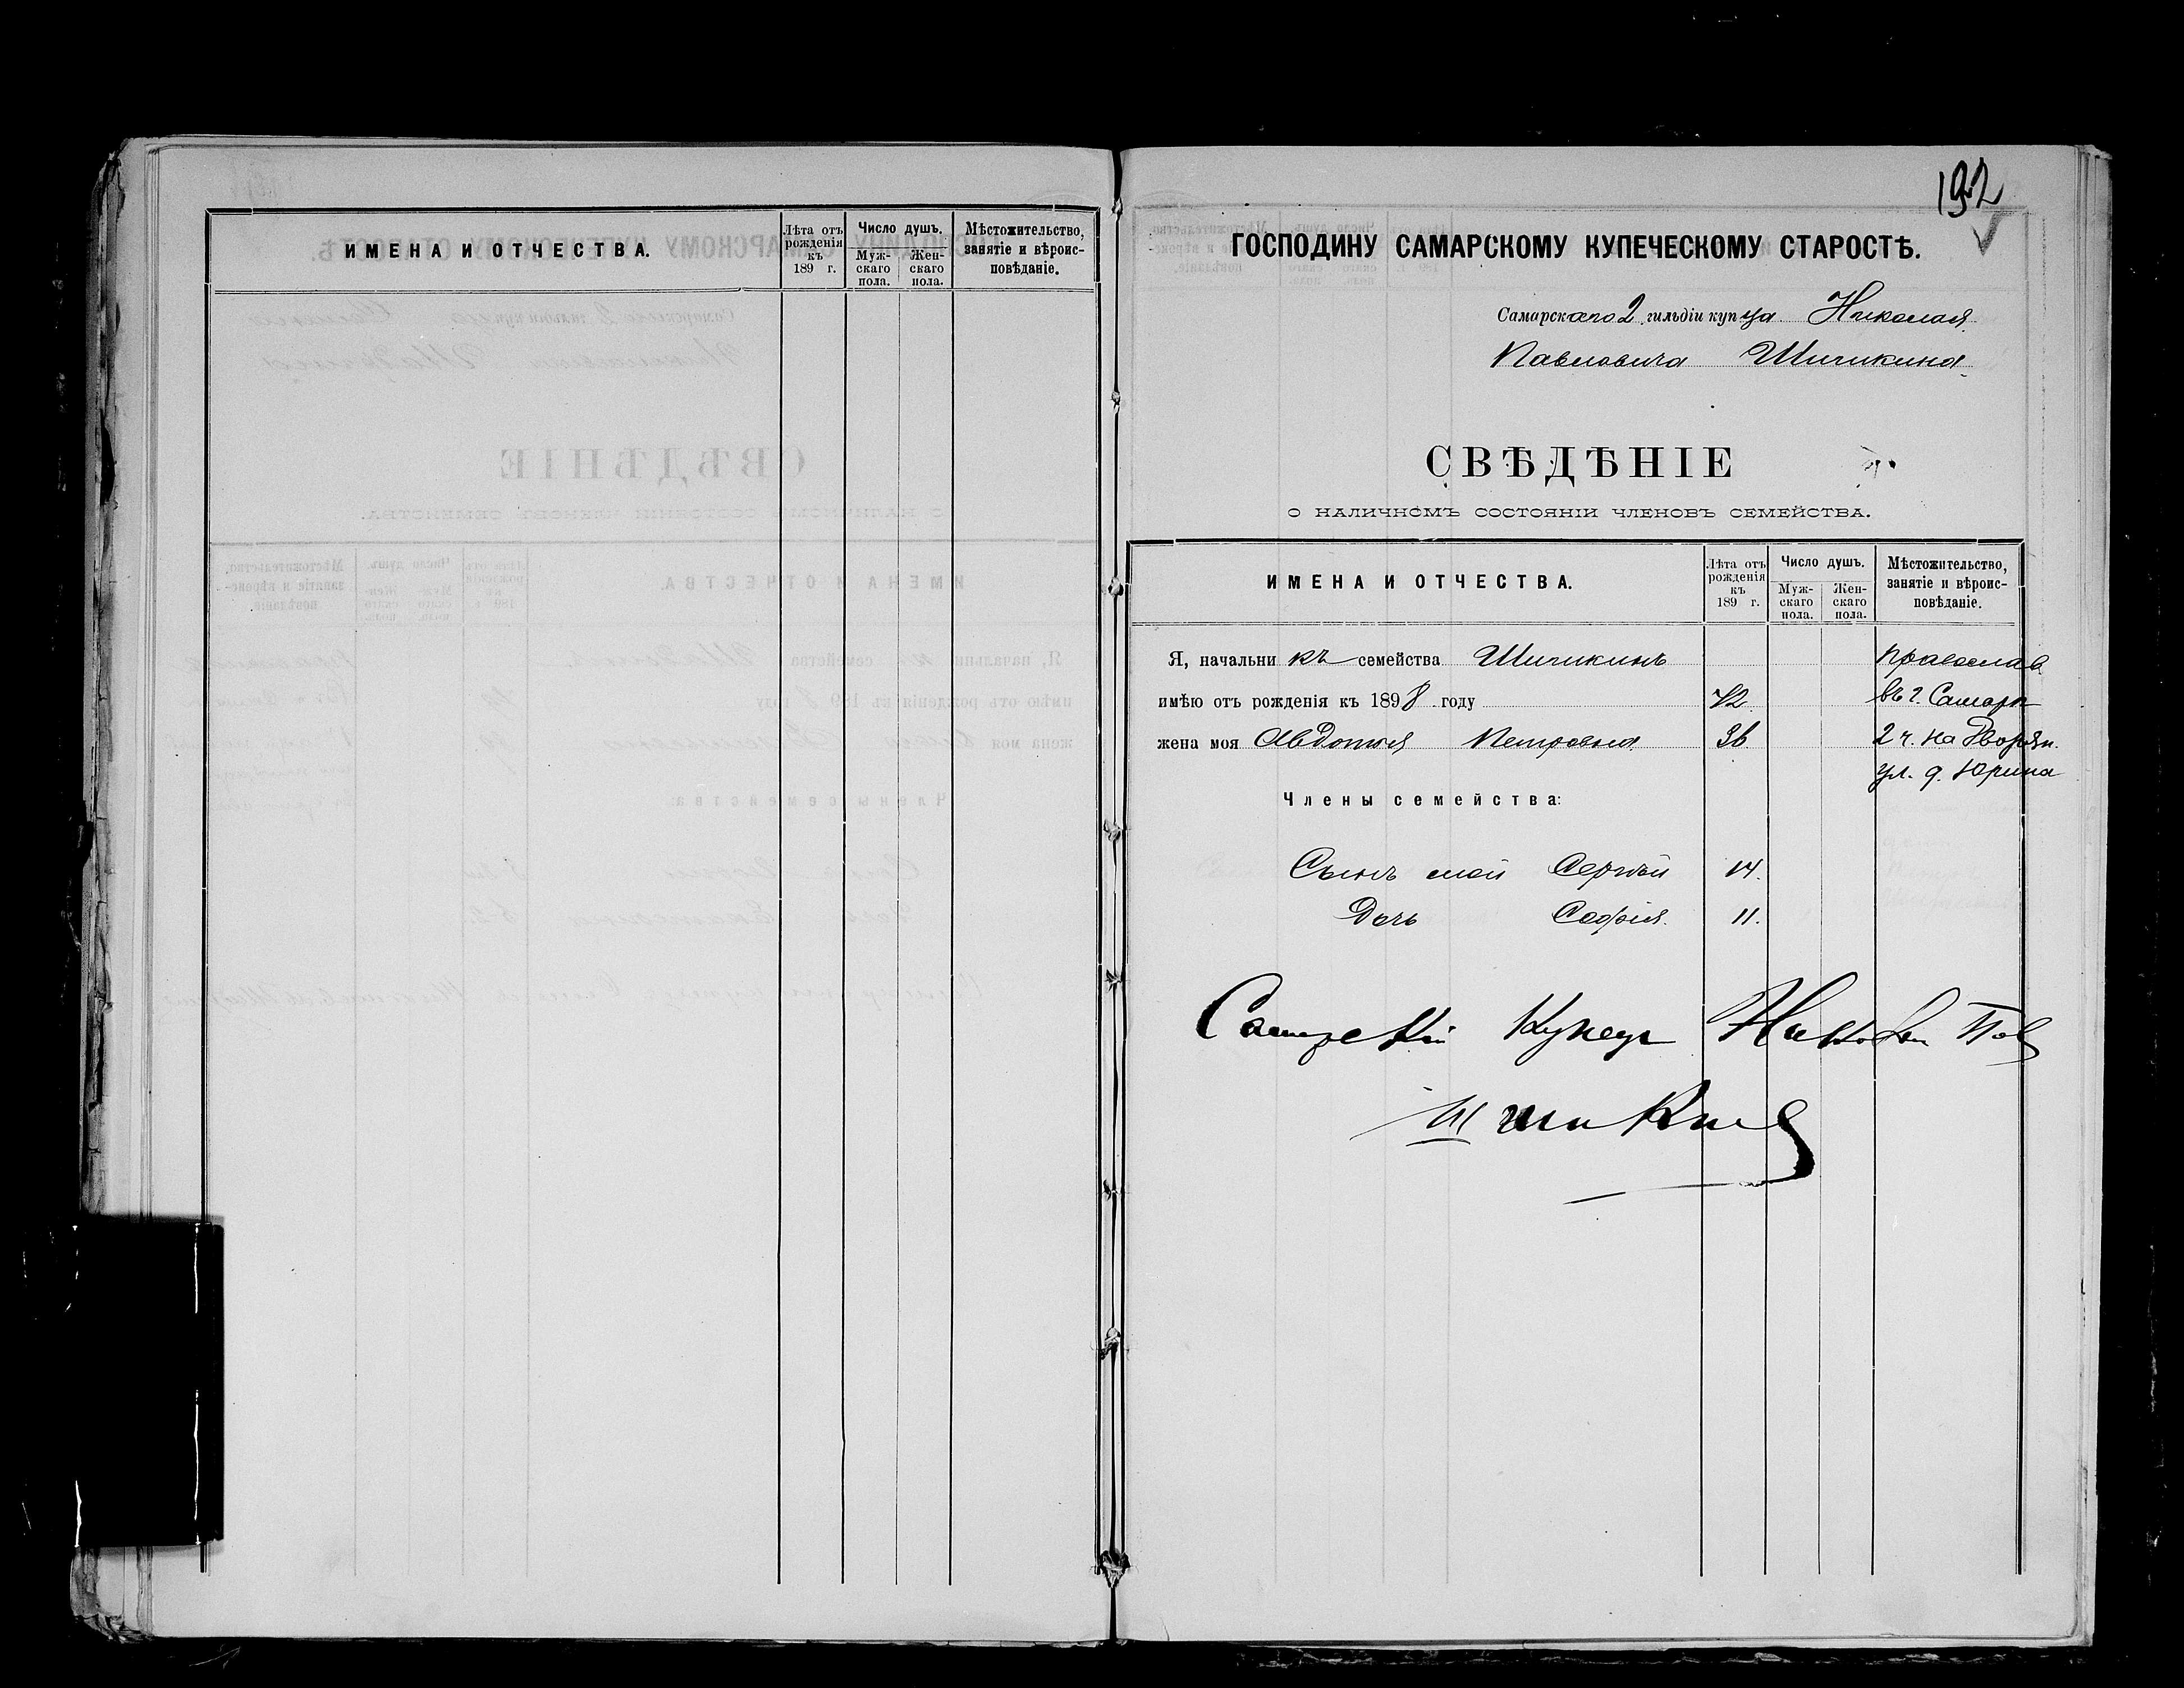 ИМЕНА И ОТЧЕСТВА.
Лѣта отъ рожденія къ 189 г.
Число душъ.
Муж-скаго пола.
Жен-скаго пола.
Мѣстожительство, занятіе и вѣроис-повѣданіе.
192
ГОСПОДИНУ САМАРСКОМУ КУПЕЧЕСКОМУ СТАРОСТѢ.
Самарскаго 2 гильдіи купца Николая
Павловича Шичикина
СВѢДѢНІЕ
О НАЛИЧНОМЪ СОСТОЯНІИ ЧЛЕНОВЪ СЕМЕЙСТВА.
ИМЕНА И ОТЧЕСТВА.
Лѣта отъ рожденія къ 189 г.
Число душъ.
Муж-скаго пола.
Жен-скаго пола.
Мѣстожительство, занятіе и вѣроис-повѣданіе.
Я, начальникъ семейства Шичикинъ Православ
имѣю отъ рожденія къ 1898 году 42 въ г. Самарѣ
жена моя Авдотья Петровна 36 2 ч. на Дворян.
ул. д. Юрина
Члены семейства:
Сынъ мой Сергѣй 14.
Дочь Софія. 11.
Самарскій Купецъ Николай Пав